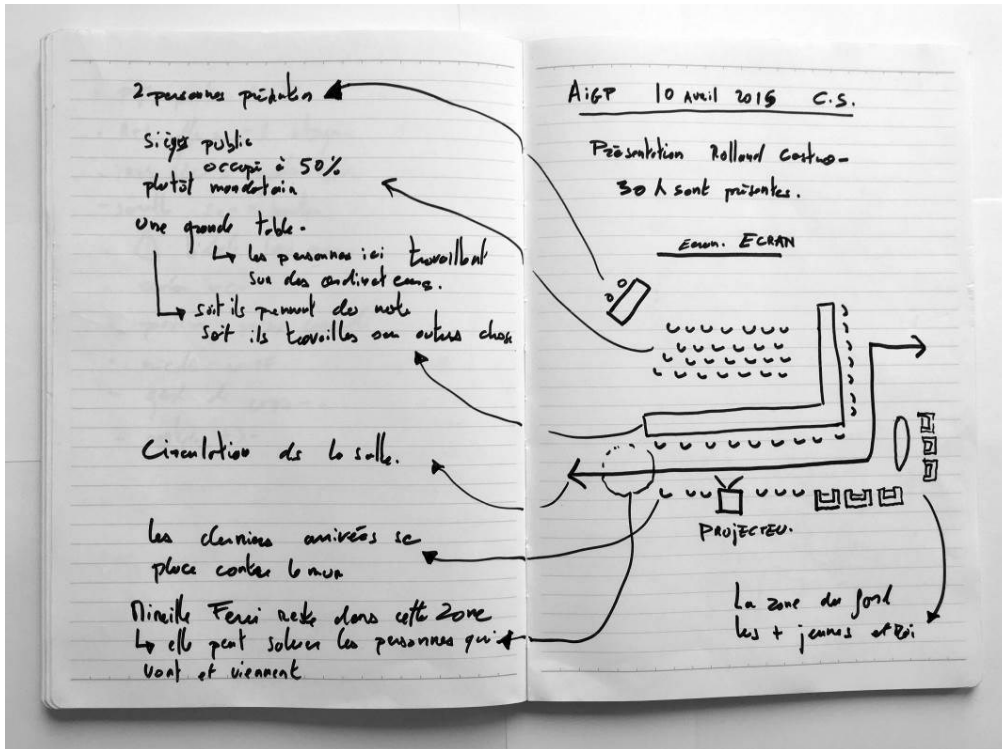 2 personnes présentes
Sièges public
occupé à 50%
plutôt mandatain
une grande table.
↳ les personnes ici travaillent
sur des ordinateurs.
↳ soit ils prennent des note
soit ils travailles sur autres chose
Circulation ds la salle.
les derniers arrivées se
place contre le mur
Mireille Ferri reste dans cette zone
↳ elle peut saluer les personnes qui
vont et viennent
AIGP 10 Avril 2015 C.S.
Présentation Rolland Castro-
30 λ sont présentes.
Ecran. ECRAN
PROJECTEU.
La zone du fond
les + jeunes et moi